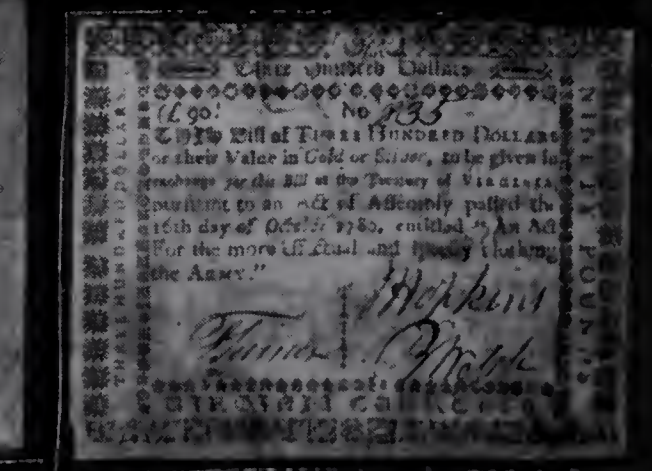 Three Hundred Dollars
(£ 90.) No 435
THIS Bill of THREE HUNDRED DOLLARS
for their Value in Gold or Silver, to be given in
exchange for this Bill at the Treasury of VIRGINIA,
pursuant to an Act of Assembly passed the
16th day of October 1780, entitled "An Act
For the more effectual and speedy clothing
the Army."
J Hopkins
THREE HUNDRED DOLLARS
NINETY POUNDS
VIRGINIA CURRENCY